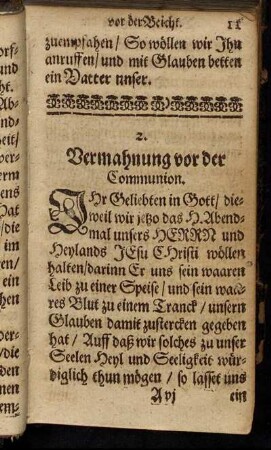 vor der Beicht. 11
zuempfahen / So wöllen wir Ihn
anruffen / und mit Glauben betten
ein Vatter unser.
2.
Vermahnung vor der
Communion.
IHr Geliebten in Gott / die-
weil wir jetzo das H. Abend-
mal unsers HERRN und
Heylands JEsu Christi wöllen
halten / darinn Er uns sein waaren
Leib zu einer Speise / und sein waa-
res Blut zu einem Tranck / unsern
Glauben damit zustercken gegeben
hat / Auff daß wir solches zu unser
Seelen Heyl und Seeligkeit wür-
diglich thun mögen / so lasset uns
A vj ein